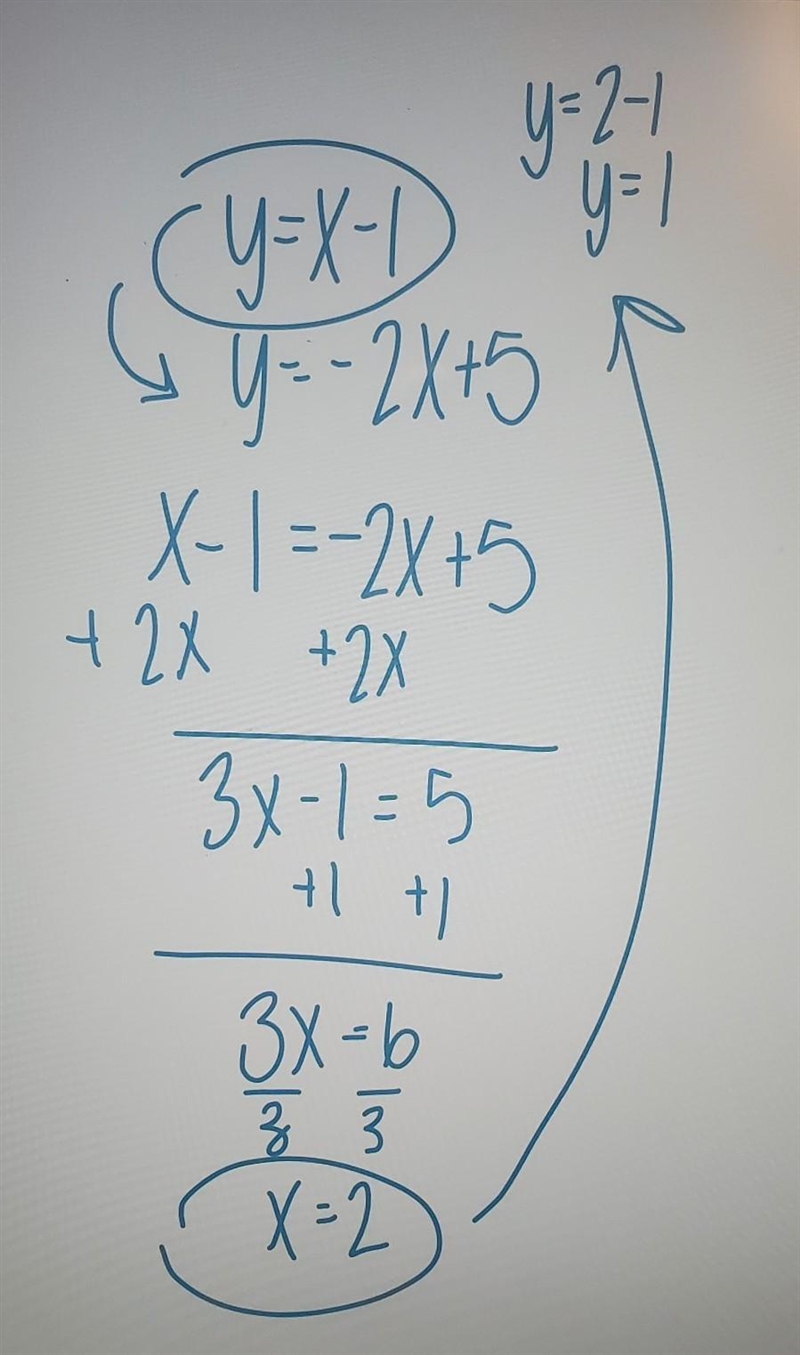 y=x-1
y=-2x+5
x-1=-2x+5
+2x +2x
3x-1=5
+1 +1
3x=6
3 3
x=2
y=2-1
y=1